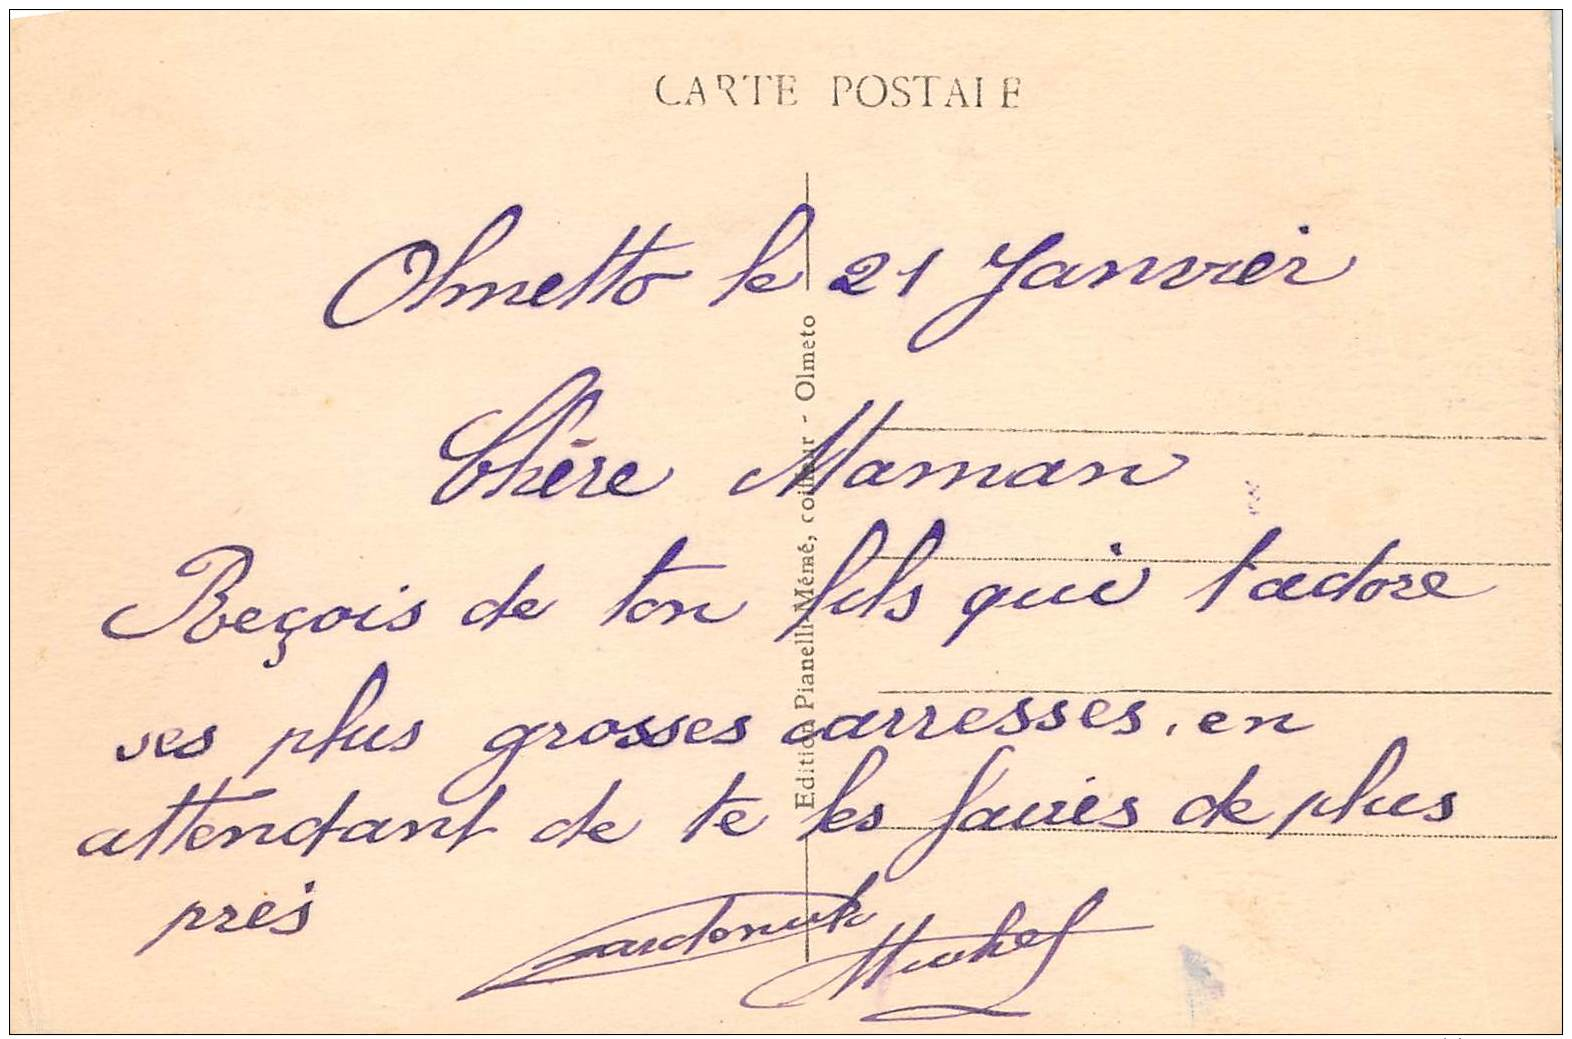 CARTE POSTALE
Olmetto le 21 Janvier
Chère Maman
Reçois de ton fils qui t'adore
ses plus grosses carresses, en
attendant de te les faires de plus
près
Michel
Edition Pianelli-Mémé, coiffeur - Olmeto